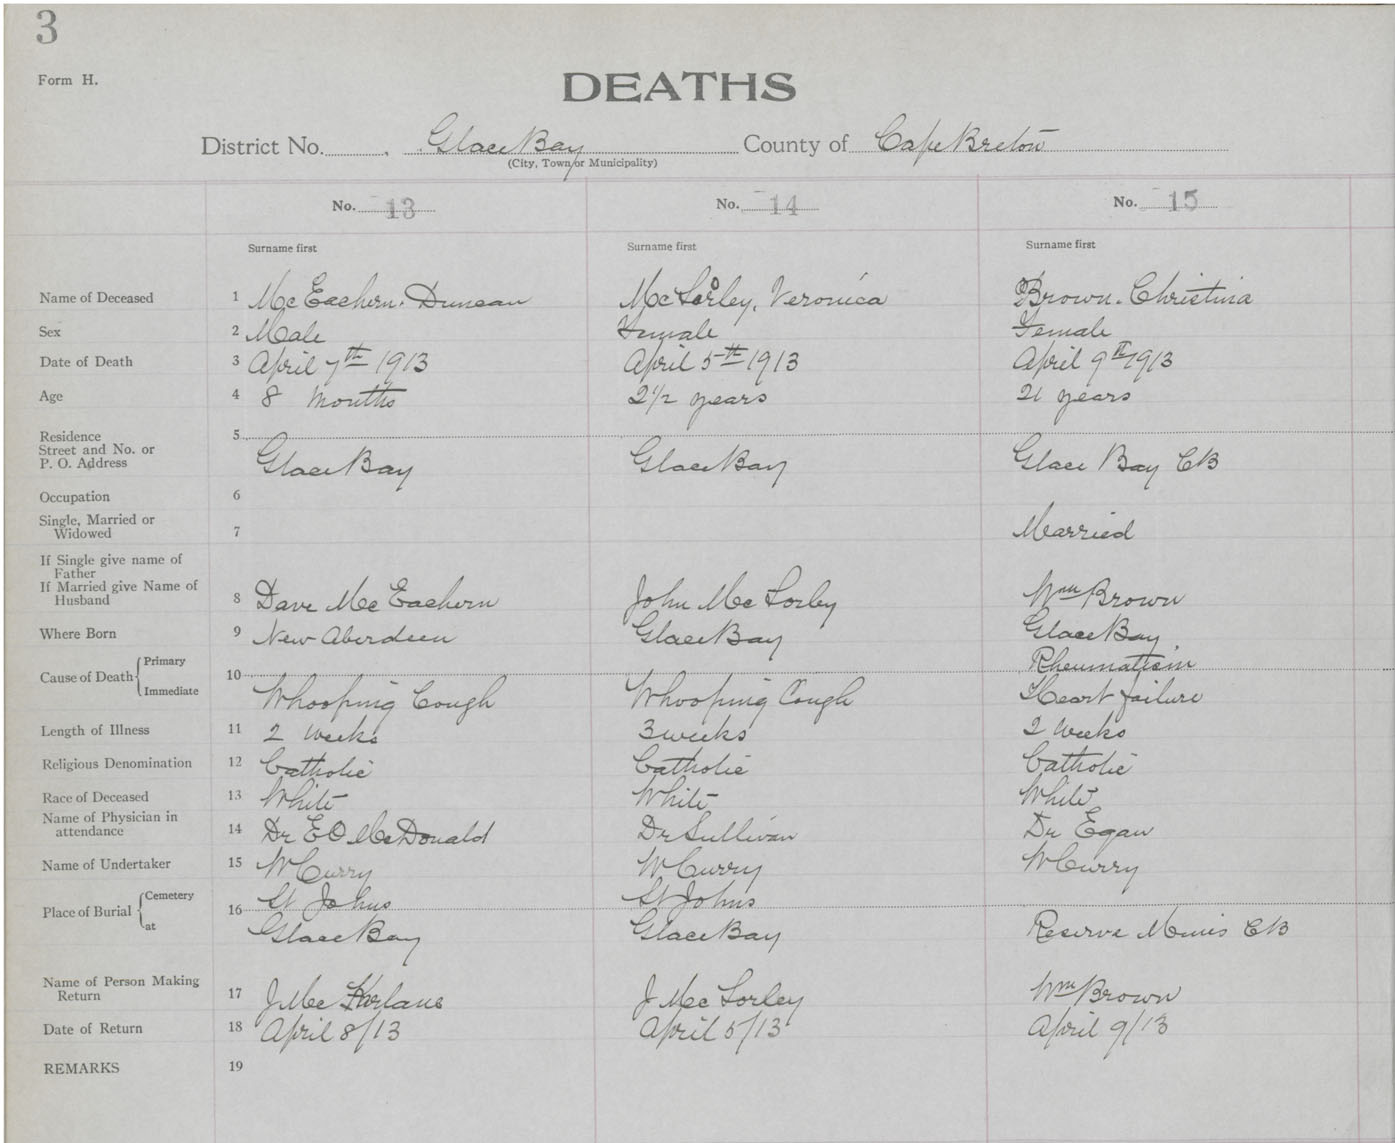 3
Form H.
DEATHS
District No. Glace Bay County of Cape Breton
(City, Town or Municipality)
No. 13 No. 14 No. 15
Surname first Surname first Surname first
Name of Deceased 1 McEachern. Duncan McSorley, Veronica Brown. Christina
Sex 2 Male Female Female
Date of Death 3 April 7th 1913 April 5th 1913 April 9th 1913
Age 4 8 months 2 1/2 years 21 years
Residence 5
Street and No. or
P. O. Address Glace Bay Glace Bay Glace Bay CB
Occupation 6
Single, Married or
Widowed 7 Married
If Single give name of
Father
If Married give Name of
Husband 8 Dave McEachern John McSorley Wm Brown
Where Born 9 New Aberdeen Glace Bay Glace Bay
Cause of Death Primary 10 Rheumatism
Immediate Whooping Cough Whooping Cough Heart failure
Length of Illness 11 2 weeks 3 weeks 2 weeks
Religious Denomination 12 Catholic Catholic Catholic
Race of Deceased 13 White White White
Name of Physician in
attendance 14 Dr E O McDonald Dr Sullivan Dr Egan
Name of Undertaker 15 W Curry W Curry W Curry
Place of Burial Cemetery 16 St Johns St Johns
at Glace Bay Glace Bay Reserve Mines CB
Name of Person Making
Return 17 J McFarlane J McSorley Wm Brown
Date of Return 18 April 8/13 April 5/13 April 9/13
REMARKS 19